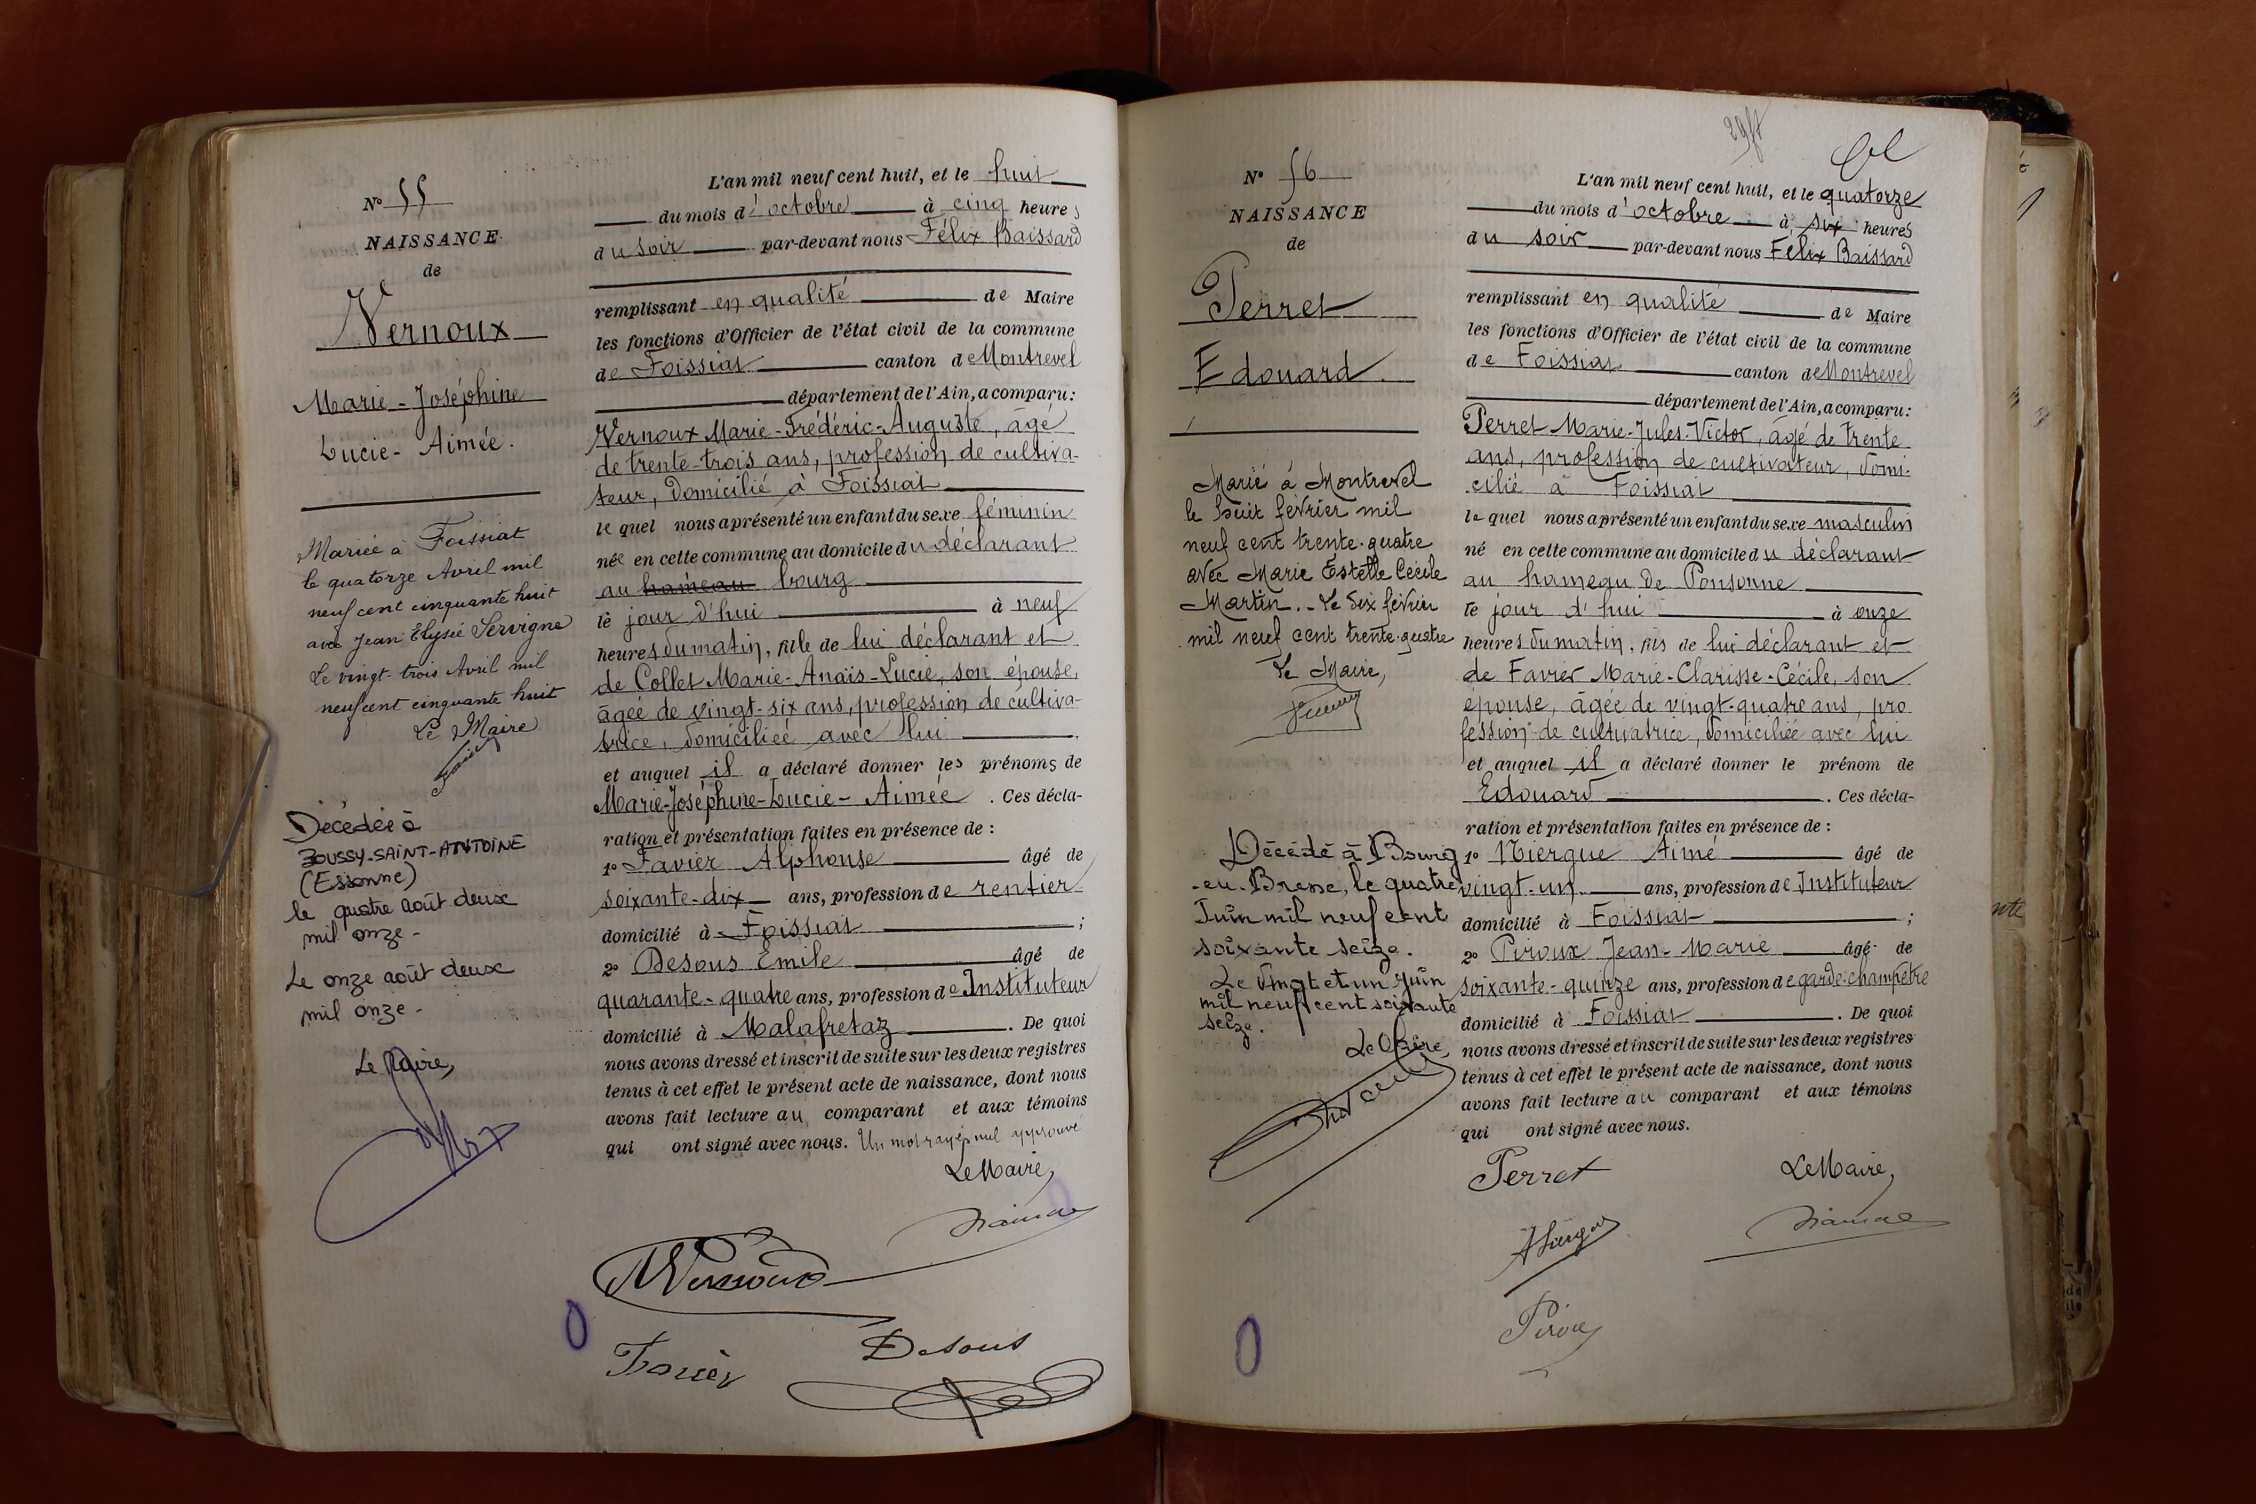 N° 55
NAISSANCE
de
Vernoux
Marie-Joséphine
Lucie-Aimée.
Mariée à Foissiat
le quatorze Avril mil
neuf cent cinquante huit
avec Jean Elysée Servigne
Le vingt-trois Avril mil
neuf cent cinquante huit
Le Maire
Décédée à
BOUSSY-SAINT-ANTOINE
(Essonne)
le quatre août deux
mil onze-
Le onze août deux
mil onze-
Le Maire,
L'an mil neuf cent huit, et le huit
du mois d'octobre à cinq heures
du soir par-devant nous Félix Baissard
remplissant en qualité de Maire
les fonctions d'Officier de l'état civil de la commune
de Foissiat canton de Montrevel
département de l'Ain, a comparu:
Vernoux Marie-Frédéric-Auguste, âgé
de trente-trois ans, profession de cultiva-
teur, domicilié à Foissiat
lequel nous a présenté un enfant du sexe féminin
née en cette commune au domicile du déclarant
au hameau bourg
le jour d'hui à neuf
heures du matin, fille de lui déclarant et
de Collet Marie-Anaïs-Lucie, son épouse,
âgée de vingt-six ans, profession de cultiva-
trice, domiciliée avec lui
et auquel il a déclaré donner les prénoms de
Marie-Joséphine-Lucie-Aimée. Ces décla-
ration et présentation faites en présence de :
1° Favier Alphonse âgé de
soixante-dix ans, profession de rentier
domicilié à Foissiat ;
2° Desous Emile âgé de
quarante-quatre ans, profession de Instituteur
domicilié à Malafretaz. De quoi
nous avons dressé et inscrit de suite sur les deux registres
tenus à cet effet le présent acte de naissance, dont nous
avons fait lecture au comparant et aux témoins
qui ont signé avec nous. Un mot rayé nul approuvé
Le Maire,
Vernoux
Favier
Desous
N° 56
NAISSANCE
de
Perret
Edouard
Marié à Montrevel
le huit février mil
neuf cent trente-quatre
avec Marie Estelle Cécile
Martin.- Le dix février
mil neuf cent trente-quatre
Le Maire,
Décédé à Bourg
-en-Bresse, le quatre
Juin mil neuf cent
soixante seize.
Le vingt et un juin
mil neuf cent soixante
seize.
Le Maire,
L'an mil neuf cent huit, et le quatorze
du mois d'octobre à six heures
du soir par-devant nous Félix Baissard
remplissant en qualité de Maire
les fonctions d'Officier de l'état civil de la commune
de Foissiat canton de Montrevel
département de l'Ain, a comparu:
Perret Marie-Jules-Victor, âgé de trente
ans, profession de cultivateur, domi-
cilié à Foissiat
lequel nous a présenté un enfant du sexe masculin
né en cette commune au domicile du déclarant
au hameau de Ponsonne
le jour d'hui à onze
heures du matin, fils de lui déclarant et
de Favier Marie-Clarisse-Cécile, son
épouse, âgée de vingt-quatre ans, pro
fession de cultivatrice, domiciliée avec lui
et auquel il a déclaré donner le prénom de
Edouard. Ces décla-
ration et présentation faites en présence de :
1° Aimé âgé de
vingt-un ans, profession de Instituteur
domicilié à Foissiat ;
2° Piroux Jean-Marie âgé de
soixante-quinze ans, profession de garde-champêtre
domicilié à Foissiat. De quoi
nous avons dressé et inscrit de suite sur les deux registres
tenus à cet effet le présent acte de naissance, dont nous
avons fait lecture au comparant et aux témoins
qui ont signé avec nous.
Perret
Le Maire,